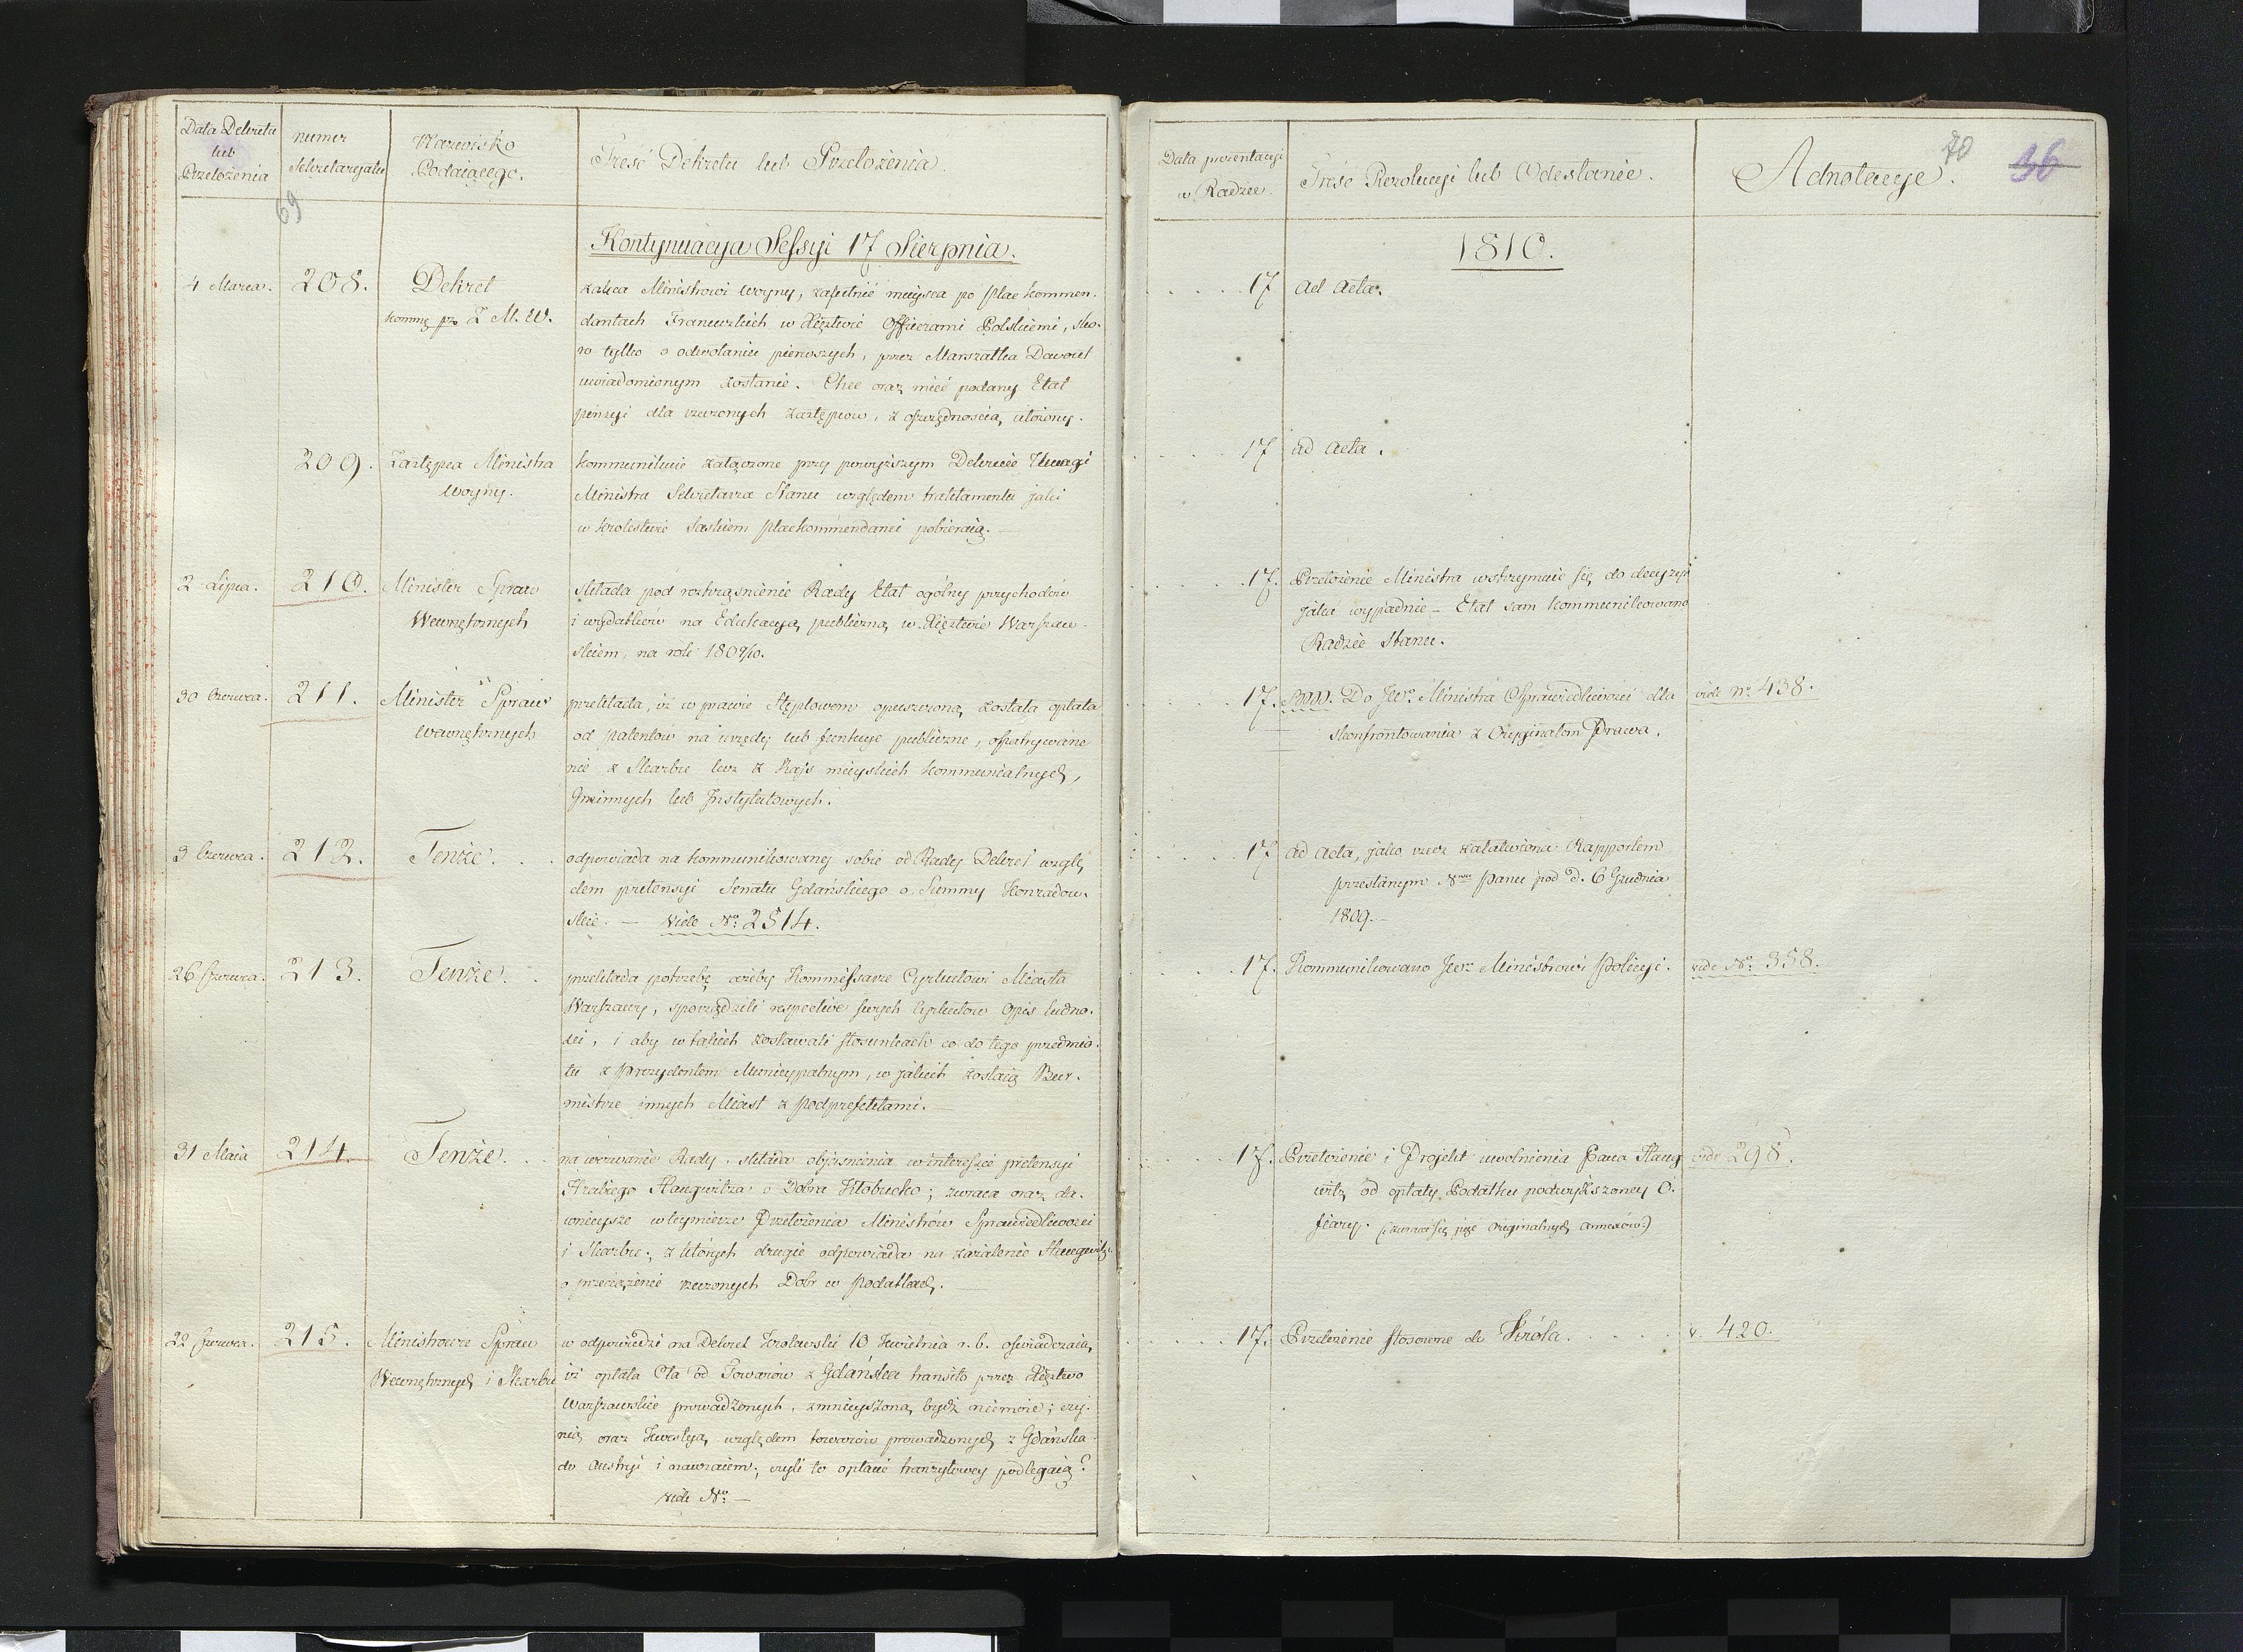 Data Dekretu
lub
Przełożenia
numer
Sekretaryatu
69
Nazwisko
Podaiącego.
Treść Dekretu lub Przełożenia.
Kontynuacya Sessyi 17 Sierpnia.
4 Marca. 208. Dekret
komm: prz Z M. W.
zaleca Ministrowi woyny, zapełnić mieysca po plac kommen-
dantach Francuzkich w Xięztwie Officerami Polskiemi, sko-
ro tylko o odwołaniu pierwszych, przez Marszałka Davout
uwiadomionym zostanie. Chce oraz mieć podany Etat
pensyi dla rzeczonych zastępców, z oszczędnością ułożony.
209. Zastępca Ministra
Woyny.
kommunikuie załączone przy powyższym Dekrecie Uwagi
Ministra Sekretarza Stanu względem traktamentu jaki
w Krolestwie Saskiem plackommendanci pobieraią. —
2 Lipca. 210. Minister Spraw
Wewnętrznych
składa pod roztrząśnienie Rady Etat ogólny przychodów
i wydatków na Edukacyą publiczną w Xięztwie Warszaw-
skiem, na rok 1809/10.
30 Czerwca. 211. Minister Spraw
wewnętrznych
przekłada, iż w prawie Stęplowem opuszczoną została opłata
od patentów na urzędy lub funkcye publiczne, opatrywane
nie z Skarbu lecz z Kass mieyskich kommunalnych,
Gminnych lub Instytutowych.
3 Czerwca. 212. Tenże. . .
odpowiada na kommunikowany sobie od Rady Dekret wzglę-
dem pretensyi Senatu Gdańskiego o Summy Konradow-
skie. — Vide No: 2514.
26 Czerwca. 213. Tenże. .
przekłada potrzebę ażeby Kommissarze Cyrkułowi Miasta
Warszawy, sporządzili respective swych Cyrkułów Opis ludno-
ści, i aby w takich zostawali stosunkach co do tego przedmio-
tu z Prezydentem Municypalnym, w jakich zostaią Bur-
mistrze innych Miast z Podprefektami. —
31 Maia 214. Tenże. . .
na wezwanie Rady, składa objaśnienia w interessie pretensyi
Hrabiego Haugwitza o Dobra Kłobucko; zwraca oraz da-
wnieysze w teymierze Przełożenia Ministrów Sprawiedliwości
i Skarbu; z których drugie odpowiada na zażalenie Haugwitz.
o przeciążenie rzeczonych Dobr w Podatkach. —
22 Czerwca. 215. Ministrowie Spraw
Wewnętrznych i Skarbu
w odpowiedzi na Dekret Krolewski 10 Kwietnia r. b. oświadczaią,
iż opłata Cła od Towarów z Gdańska transito przez Xięztwo
Warszawskie prowadzonych, zmnieyszoną bydź niemoże; czy-
nią oraz Kwestyą względem towarów prowadzonych z Gdańska
do Austryi i nawzaiem; czyli te opłacie tranzytowey podlegaią?
vide No: —
Data prezentacyi
w Radzie.
Treść Rezolucyi lub Odesłanie.
Adnotacye.
70 36
1810.
17 ad Acta.
17 ad Acta.
17. Przełożenie Ministra wstrzymuie się do decyzyi
jaka wypadnie – Etat sam kommunikowano
Radzie Stanu.
17. Do JW. Ministra Sprawiedliwości dla
skonfrontowania z Oryginałem Prawa.
vide No 438.
17 ad Acta, jako rzecz załatwiona Rapportem
przesłanym Nmu Panu pod d. 6 Grudnia
1809. –
17. Kommunikowano JW. Ministrowi Policyi.
vide No: 358.
17. Przełożenie i Projekt uwolnienia Pana Haug-
witz od opłaty Podatku podwyższoney O-
fiary. (zwracaią się przy originalnych annexów)
vide 298.
17. Przełożenie stosowne do Króla. . . . .
v. 420.